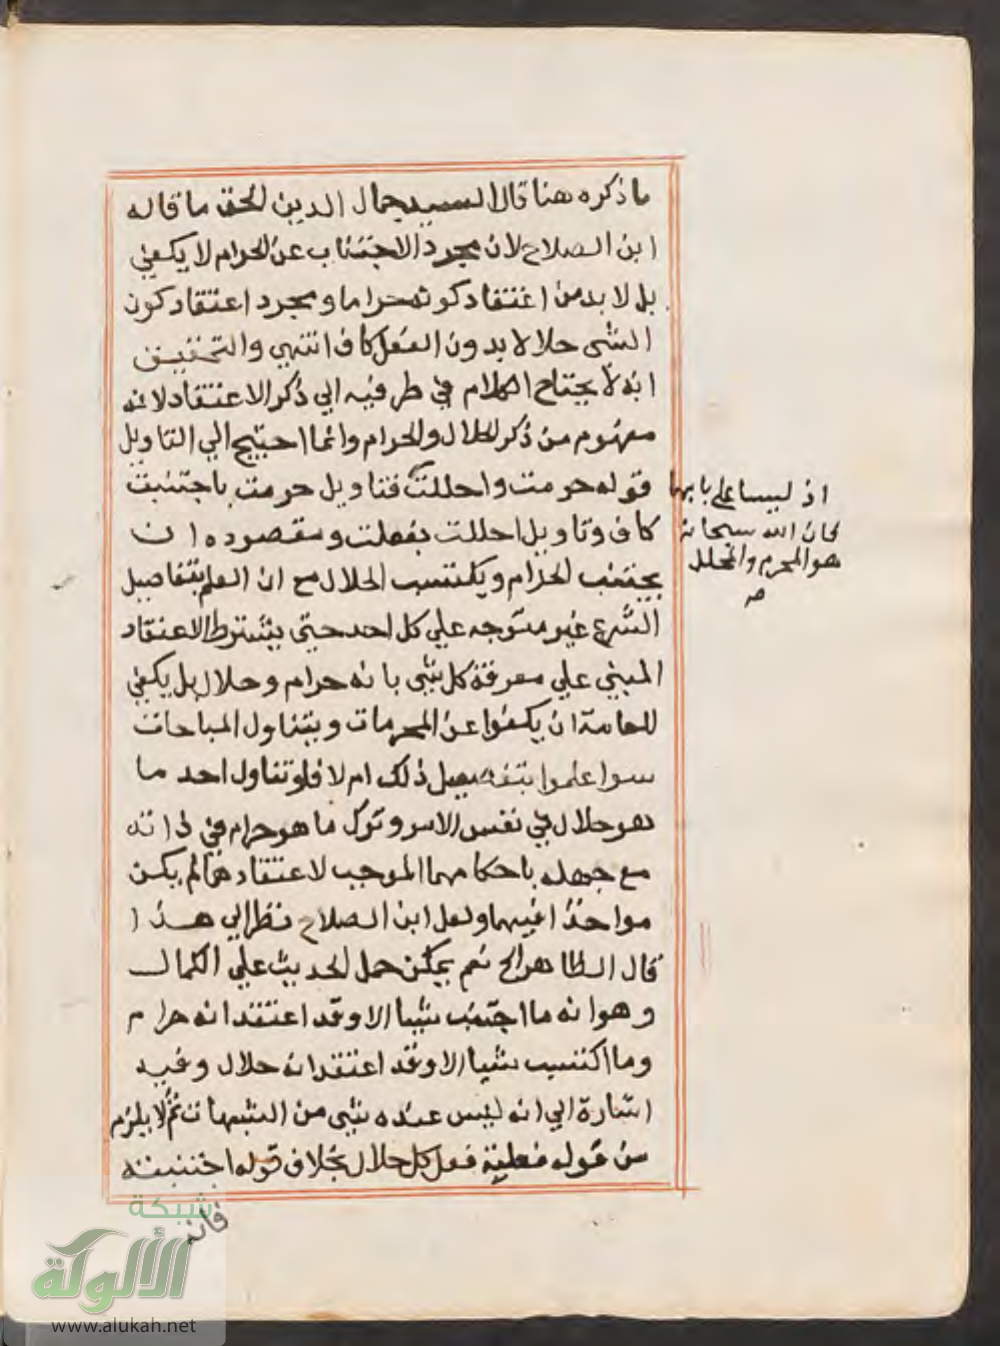 ما ذكره هنا قال السيد جمال الدين الحق ما قاله
ابن الصلاح لان مجرد الاجتناب عن الحرام لا يكفي
بل لا بد من اعتقاد كونه حراما ومجرد اعتقاد كون
الشي حلالا بدون الفعل كاف انتهي والتحقيق
انه لا يحتاج الكلام في طرفيه الي ذكر الاعتقاد لانه
مفهوم من ذكر الحلال والحرام وانما احتيج الي التاويل
قوله حرمت واحللت فتاويل حرمت باجتنبت
كاف وتاويل احللت بفعلت ومقصوده ان
يجتنب الحرام ويكتسب الحلال مع ان العلم بتفاصيل
الشرع غير متوجه علي كل احد حتي يشترط الاعتقاد
المبني علي معرفة كل شي بانه حرام وحلال بل يكفي
للعامة ان يكفوا عن المحرمات ويتناول المباحات
سوا علموا بتفصيل ذلك ام لا فلو تناول احد ما
هو حلال في نفس الامر وترك ما هو حرام في ذاته
مع جهله باحكامهما الموجب لاعتقادهما لم يكن
مواخذا فيهما ولعل ابن الصلاح نظر الي هذا
قال الظاهر الخ نعم يمكن حمل الحديث علي الكمال
وهو انه ما اجتنب شيا الا وقد اعتقد انه حرام
وما اكتسب شيا الا وقد اعتقد انه حلال وفيه
اشارة الي انه ليس عنده شي من الشبهات ثم لا يلزم
من قوله فعلته فعل كل حلال بخلاف قوله اجتنبته
فانه
اذ ليسا علي بابهما
لان الله سبحانه
هو المحرم والمحلل
صه
شبكة
الألوكة
www.alukah.net